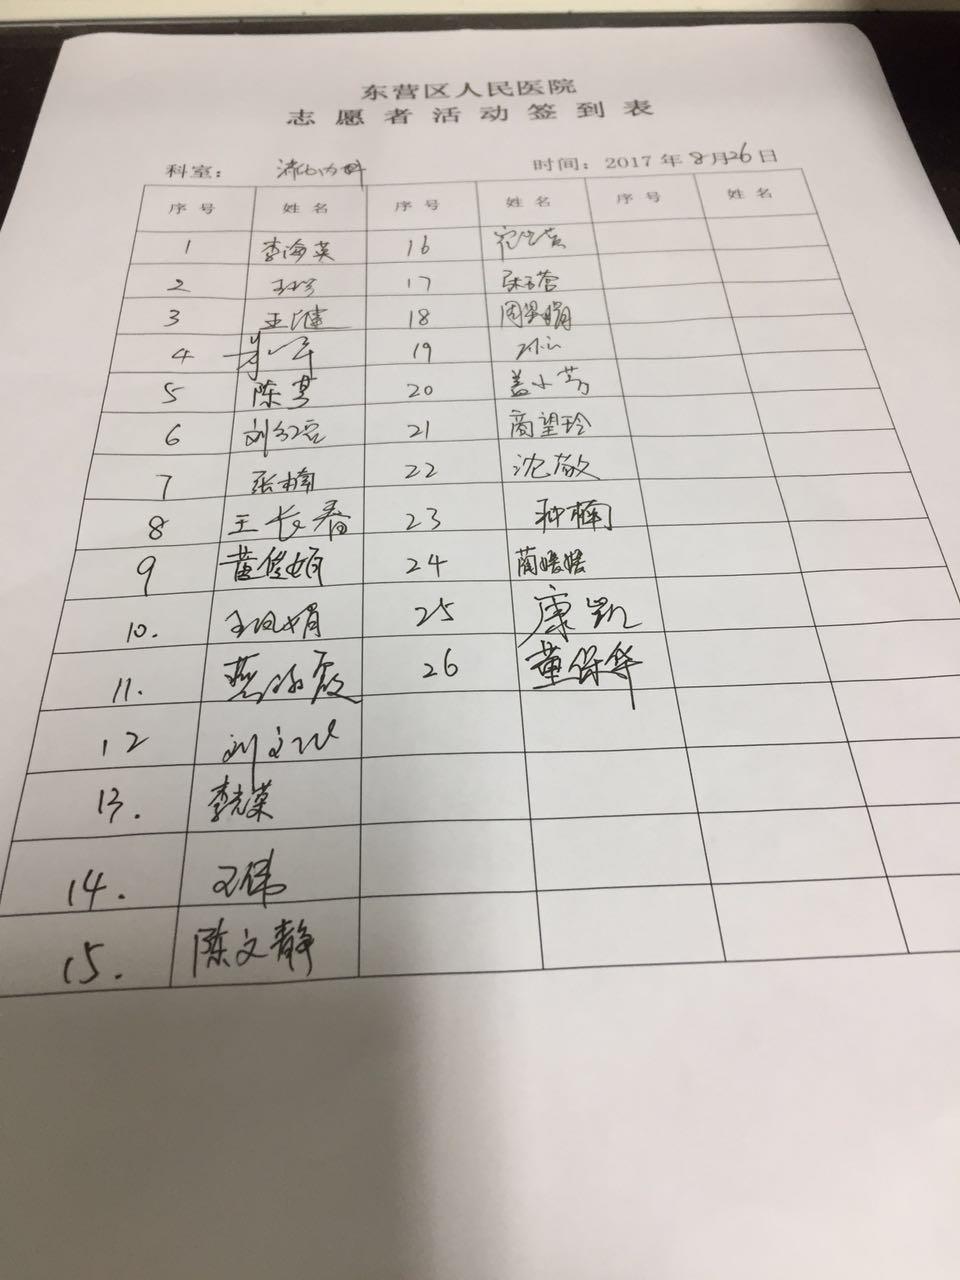 东营区人民医院
志愿者活动签到表
科室： 消化内科 时间：2017年8月26日
序号 姓名 序号 姓名 序号 姓名
1 李海英 16
2 17
3 王健 18
4 19
5 陈 20 盖小芳
6 刘 21 商望玲
7 张楠 22 沈敬
8 王长春 23 种楠
9 黄俊娟 24 蔺媛媛
10. 王凤娟 25 康凯
11. 26 董保华
12 刘文
13. 李光荣
14. 王伟
15. 陈文静